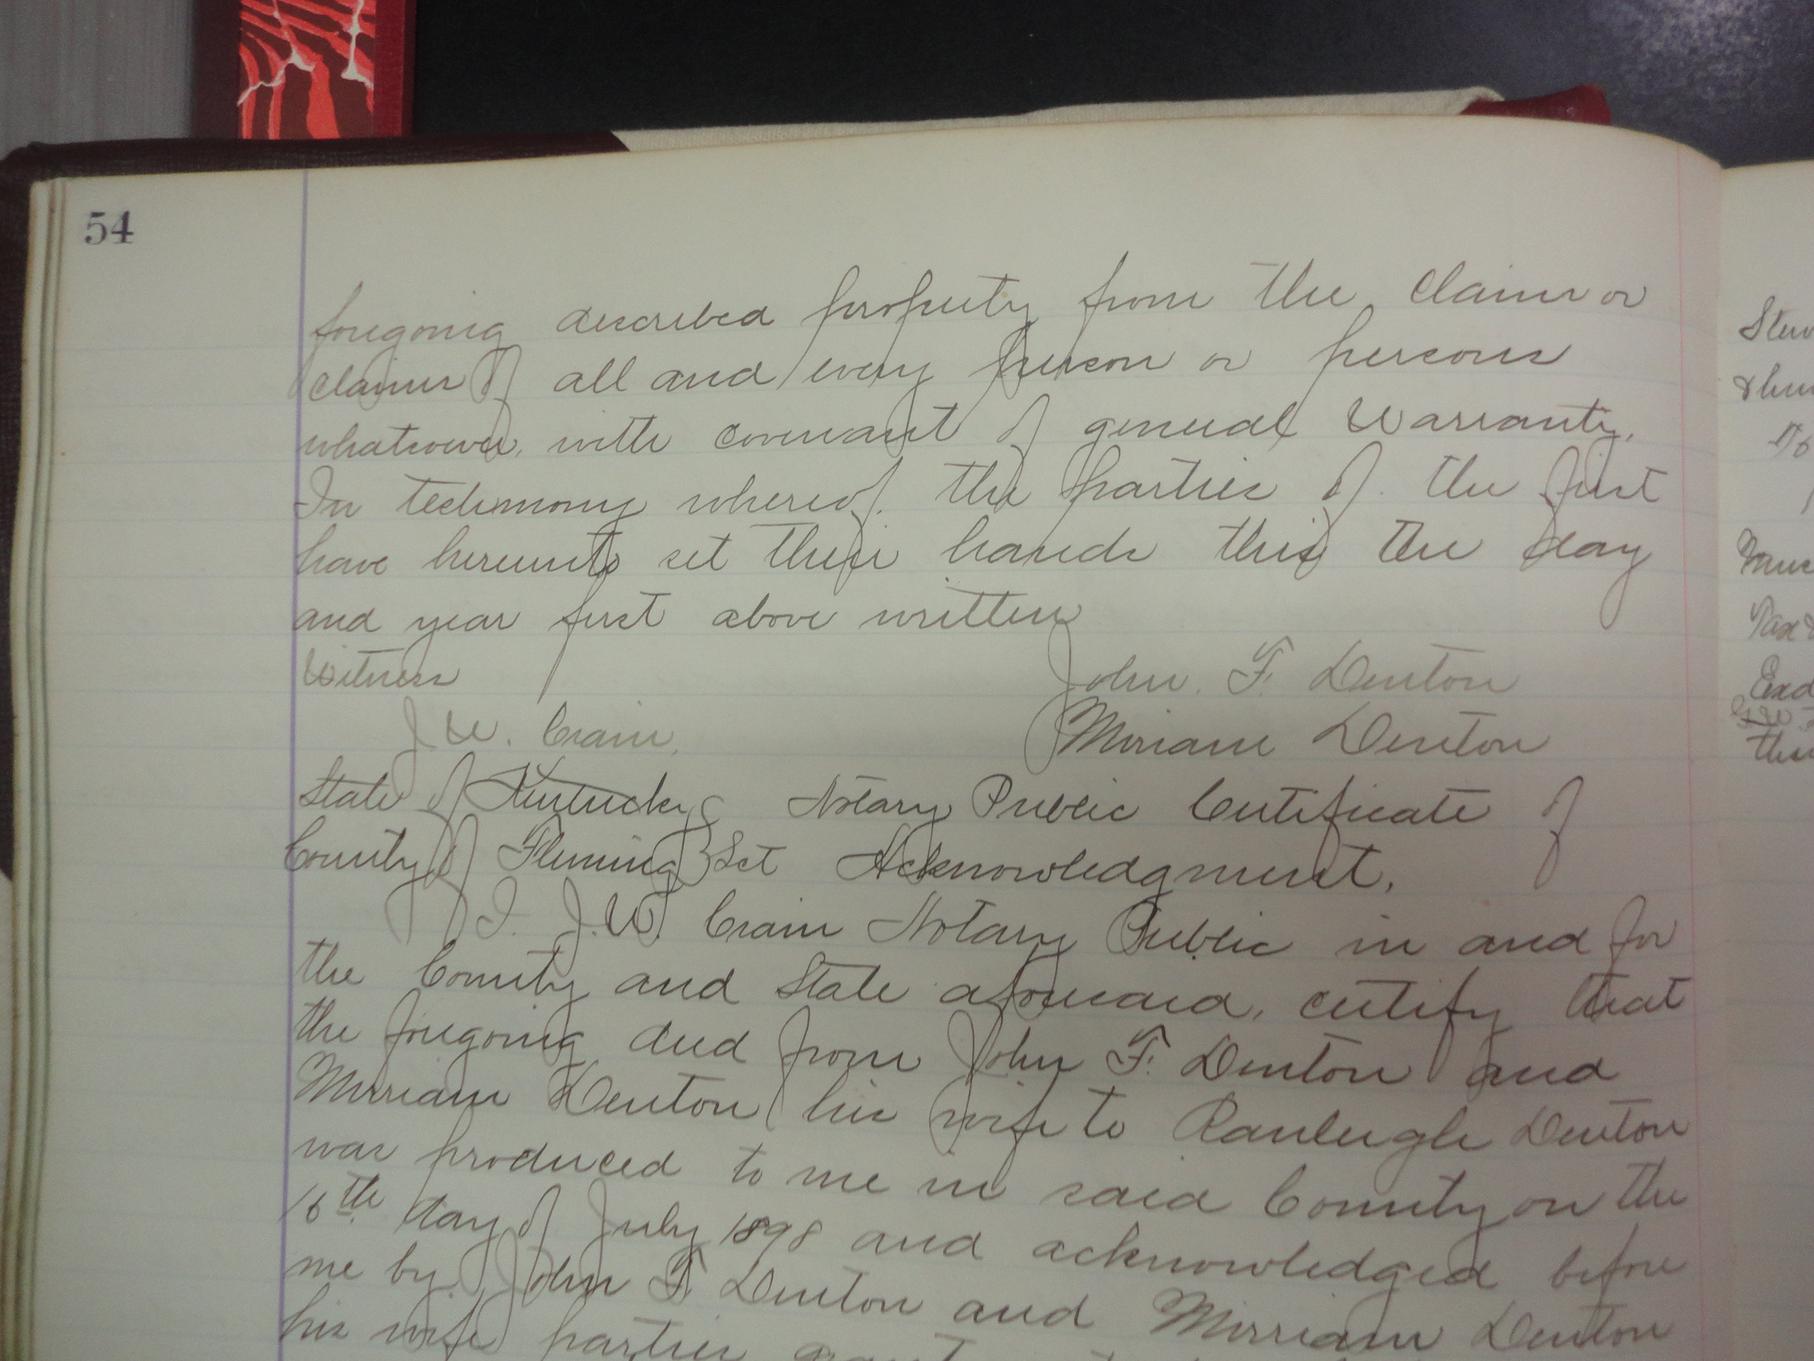 54
foregoing described property from the claim or
claims of all and every person or persons
whatsoever, with covenant of general Warranty.
In testimony whereof, the parties of the first
have hereunto set their hands this the day
and year first above written
Witness John. F. Denton
J W. Crain. Miriam Denton
State of Kentucky } Notary Public Certificate of
County of Fleming } Sct Acknowledgment.
I. J.W. Crain Notary Public in and for
the County and State aforesaid, certify that
the foregoing deed from John F. Denton and
Mirriam Denton his wife to Ranleigh Denton
was produced to me in said County on the
16th day of July 1898 and acknowledged before
me by John F Denton and Mirriam Denton
his wife parties